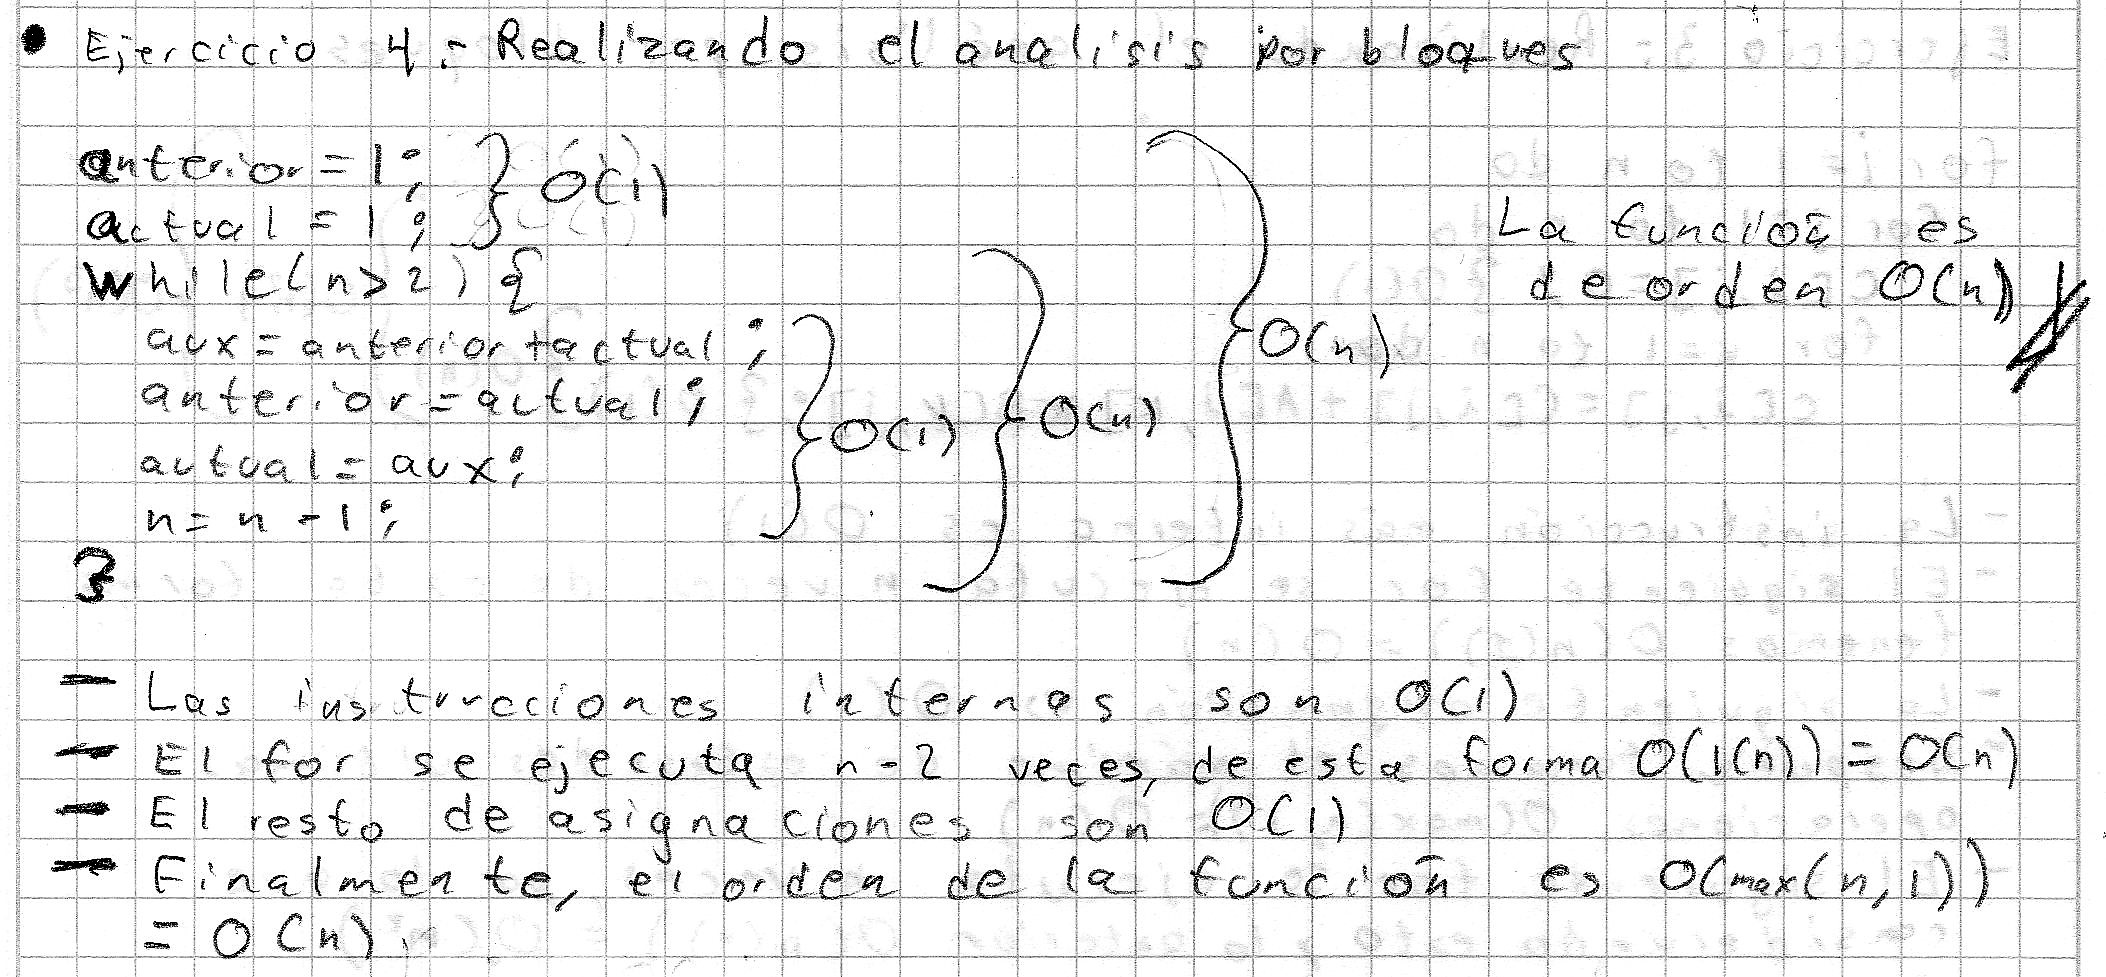 • Ejercicio 4.- Realizando el analisis por bloques
anterior = 1; } O(1)
actual = 1;
while(n>2) {
aux = anterior + actual;
anterior = actual;
actual = aux;
n = n - 1;
}
O(1)
O(n)
O(n)
La función es
de orden O(n)
- Las instrucciones internas son O(1)
- El for se ejecuta n-2 veces, de esta forma O(1(n)) = O(n)
- El resto de asignaciones son O(1)
- Finalmente, el orden de la función es O(max(n,1))
= O(n).